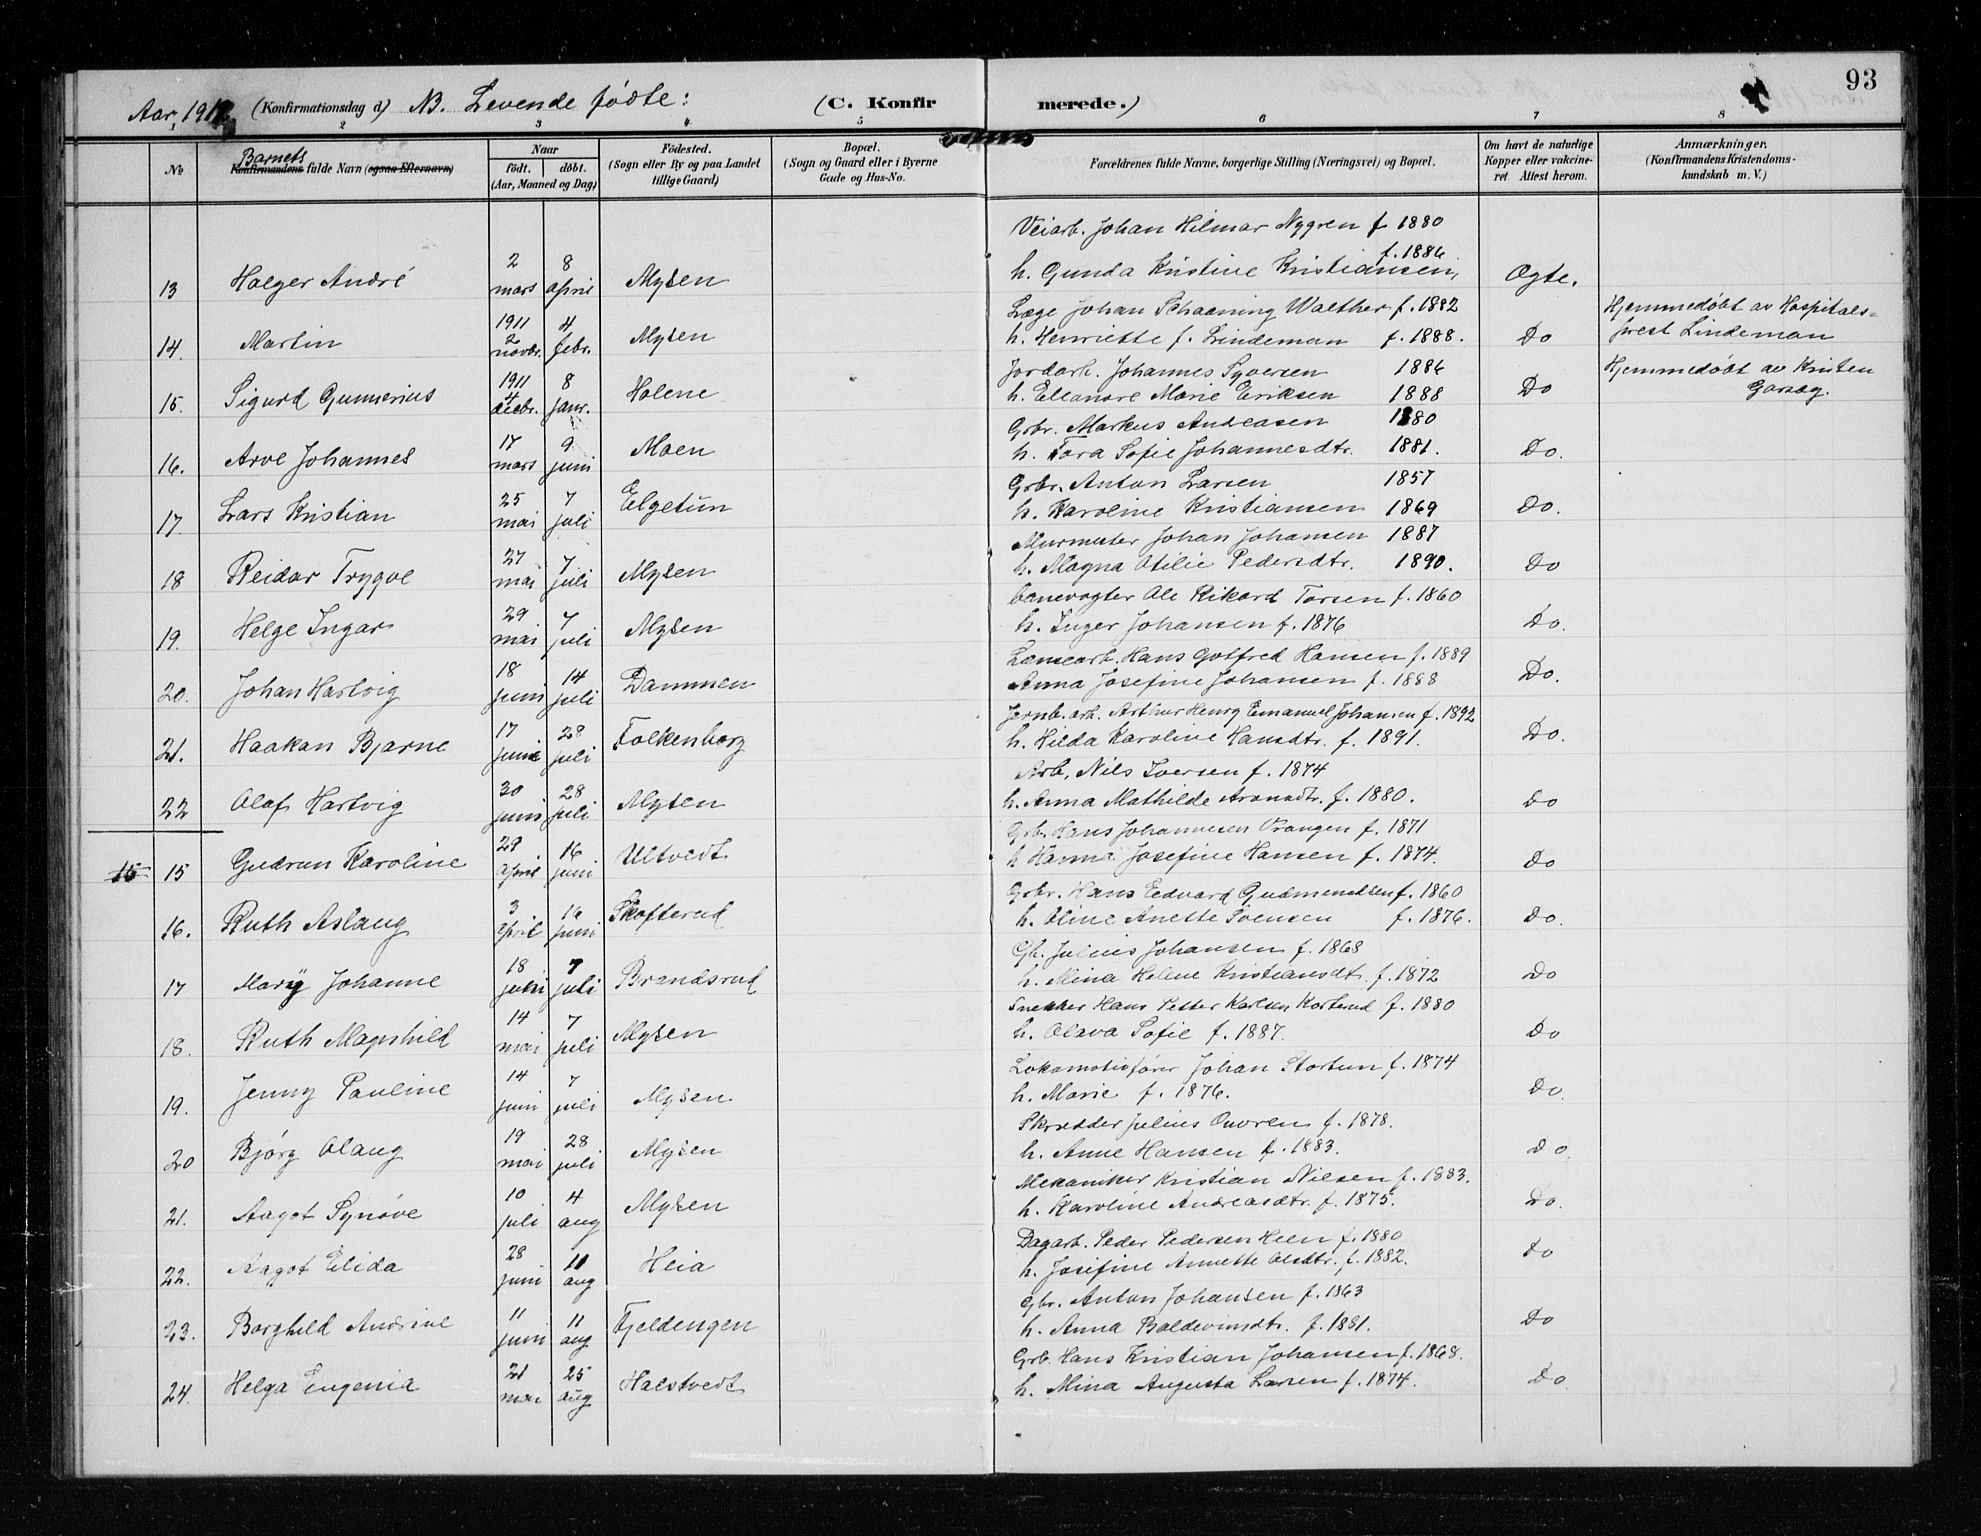 93
Aar, 1912. (Konfirmationsdag d) NB. Levende fødte: (C. Konfirmerede.)
2 3 4 5 6 7 8
No
Barnets
Konfirmandens fulde Navn (ogsaa Efternavn)
Naar
født. døbt.
(Aar, Maaned og Dag)
Fødested.
(Sogn eller By og paa Landet
tillige Gaard)
Bopæl.
(Sogn og Gaard eller i Byerne
Gade og Hus-No.
Forældrenes fulde Navne, borgerlige Stilling (Næringsvei) og Bopæl.
Om havt de naturlige
Kopper eller vakcine-
ret. Attest herom.
Anmærkninger.
(Konfirmandens Kristendoms-
kundskab m. V.)
Veiarb. Johan Hilmar Nygren f 1880
2 8 f. 1886
13 Holger André mars april Mysen h. Gunda Kristine Kristiansen, Ægte.
1911 4 Læge Johan Schaanning Walther f. 1882 Hjemmedøbt av Hospitals-
14. Martin 2 novbr. febr. Mysen h. Henriette f. Lindeman f. 1888. Do prest Lindeman
1911 8 Jordarb. Johannes Syversen 1886 Hjemmedøbt av Kristen
15. Sigurd Gunnerius 4 decbr. janr. Holene h. Elleanore Marie Eriksen 1888 Do
17 9 Grbr. Markus Andreasen 1880
16. Arve Johannes mars juni Moen h. Tora Sofie Johannesdtr. 1881. Do.
25 7 Grbr. Anton Larsen 1857
17. Lars Kristian mai juli Elgetun h. Karoline Kristiansen 1869 Do.
27 7 Murmester Johan Johansen 1887
18 Reidar Trygve mai juli Mysen h. Magna Otilie Pedersdtr. 1890. Do
29 7 Banevogter Ole Rikard Torsen f. 1860
19. Helge Ingar mai juli Mysen h. Inger Johansen f. 1876 Do.
18 14 Lænsearb. Hans Gotfred Hansen f. 1889
20. Johan Hartvig juni juli Dammen Anna Josefine Johansen f. 1888 Do.
17 28 Jernb. arb. Arthur Henry Emanuel Johansen f. 1892
21. Haakan Bjarne juni juli Folkenborg h. Hilda Karoline Hansdtr. f. 1891. Do.
30 28 Arb. Nils Iversen f. 1874
22 Olaf Hartvig juni juli Mysen h. Anna Mathilde Aronsdtr. f. 1880. Do
29 16 Grbr. Hans Johannesen Vrangen f. 1871
15 15 Gudrun Karoline april juni Ultvedt h Hanna Josefine Hansen f. 1874. Do
3 16 Grbr. Hans Edvard Gudmundsen f. 1860
16. Ruth Aslaug april juni Skofterud h. Oline Anette Svensen f. 1876. Do.
18 7 Gbr. Julius Johansen f. 1868
17 Mary Johanne juni juli Brandsrud h. Mina Helene Kristiansdt. f. 1872 Do
14 7 Snekker Hans Petter Karlsen Korterud f. 1880
18. Ruth Magnhild mai juli Mysen h. Olava Sofie f. 1887. Do
14 7 Lokomotivfører Johan Stortun f. 1874
19. Jenny Pauline juni juli Mysen h. Marie f. 1876. Do.
19 28 Skrædder Julius f. 1878.
20 Bjørg Olaug mai juli Mysen h. Anne Hansen f. 1883. Do.
10 4 Mekaniker Kristian Nilsen f. 1883.
21. Aagot Synøve juli aug Mysen h. Karoline Andreasdtr. f. 1875. Do.
28 11 Dagarb. Peder Pedersen Heen f. 1880
22. Aagot Elida juni aug Heia h. Josefine Annette Olsdtr. f. 1882. Do
11 11 Gbr. Anton Johansen f. 1863
23. Borghild Andrine juni aug Fjeldengen h. Anna Baldevinsdtr. f. 1881. Do
21 25 Grb. Hans Kristian Johansen f. 1868.
24. Helga Eugenia mai aug Halstvedt h. Mina Augusta Larsen f. 1874. Do.